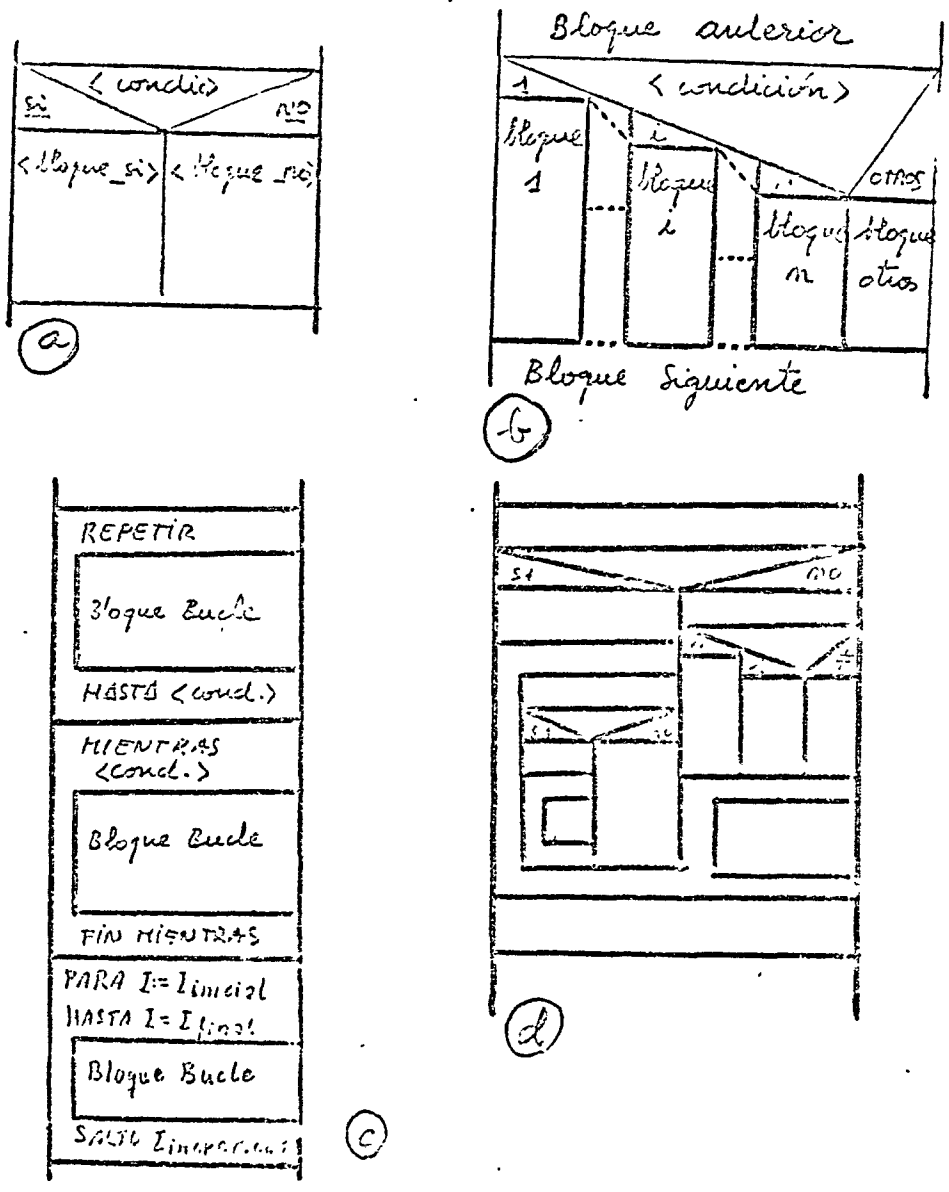 <condic>
si
no
<bloque_si> <bloque_no>
a
Bloque anterior
<condición>
1
i
otros
bloque
1
bloque
i
bloque
n
bloque
otros
Bloque Siguiente
b
REPETIR
Bloque Bucle
HASTA <cond.>
MIENTRAS
<cond.>
Bloque Bucle
FIN MIENTRAS
PARA I=Iinicial
HASTA I=Ifinal
Bloque Bucle
SALTO
c
si
no
si
no
d